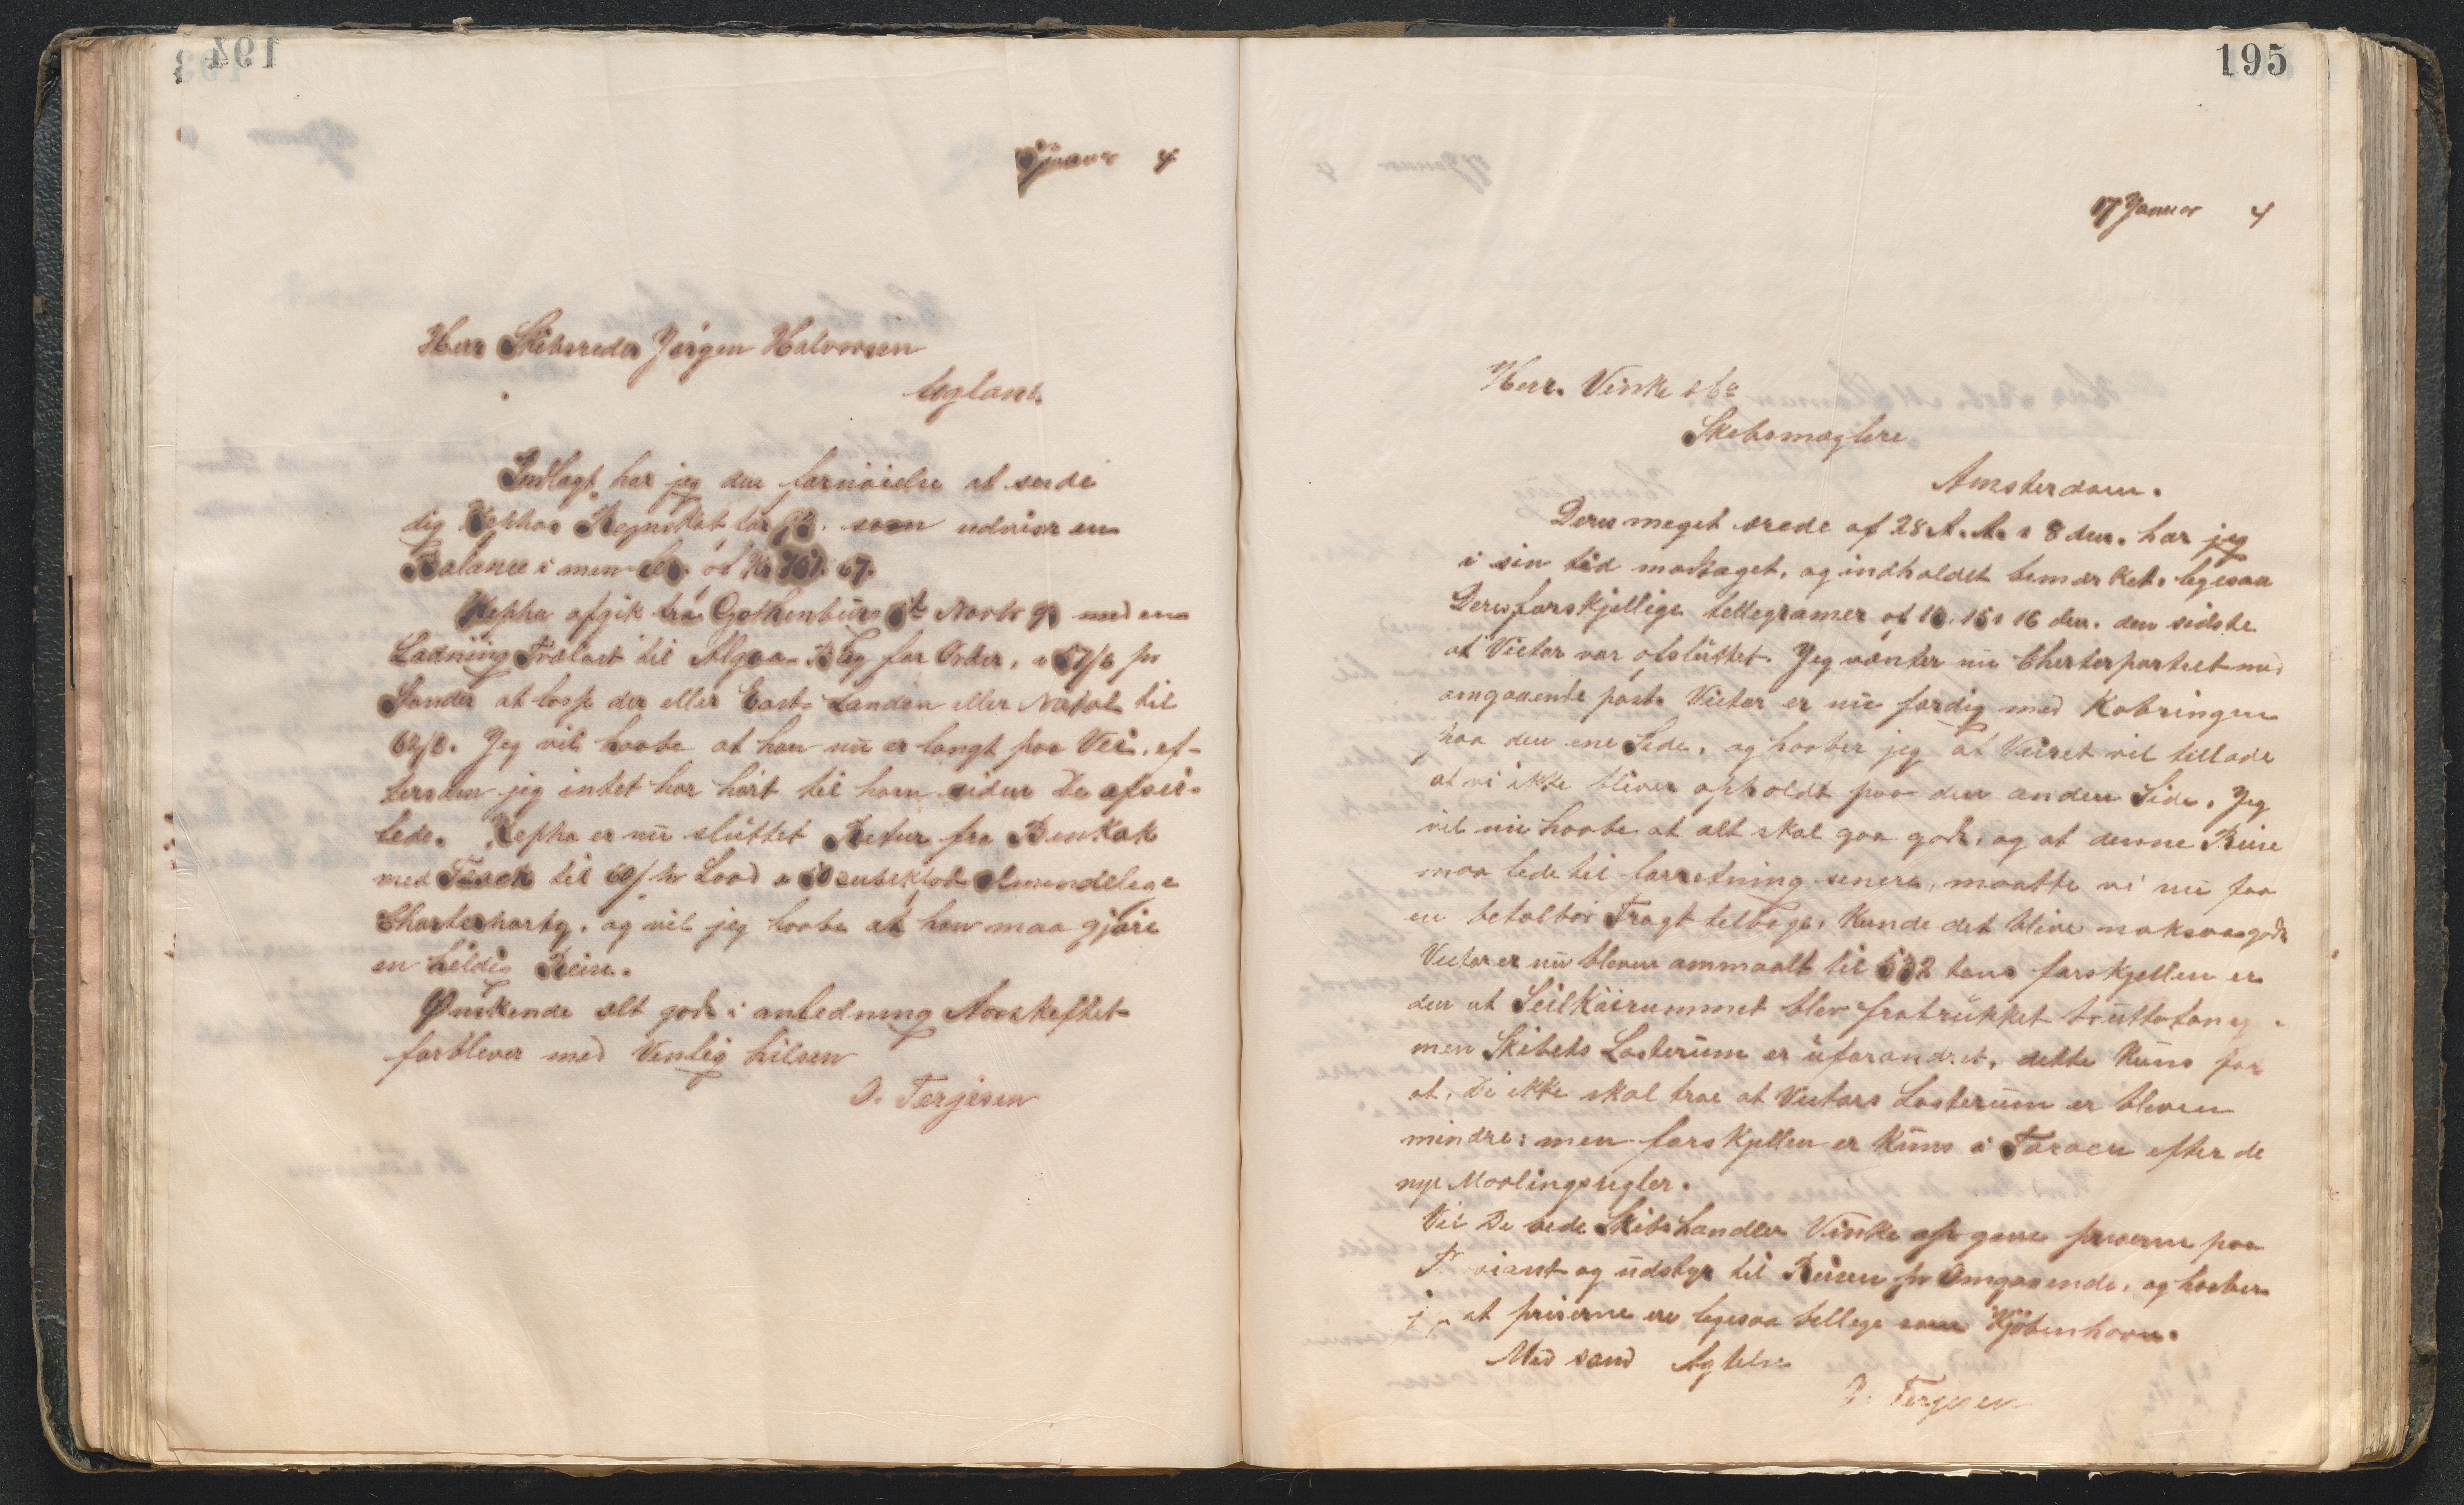 194
Januar 4
Herr Skibsreder Jørgen Halvorsen
Uglane.
Indlagt har jeg den fornøielse at sende
dig Kephas Regnskab for 93. som udviser en
Balance i min
Kepha afgik fra Gothenburg Novbr 93 med en
Ladning Trælast til Algoa Bay for Order, a 57/6 pr
Stander at losse der eller East London eller Natal til
62/6. Jeg vil haabe at han nu er langt paa Vei, ef-
tersom jeg intet har hørt til ham siden De afsei-
lede. Kepha er nu sluttet Retur fra Benkok
med Teack til 60/ pr Load a 50 cubikfod almindelige
Charterparty. og vil jeg haabe at han maa gjøre
en heldig Reise.
Ønskende alt godt i anledning Aarskeftet
forbliver med Venlig hilsen
O. Terjesen
195
17 Januar 4
Herr. Vinke & Co
Skibsmæglere
Amsterdam.
Deres meget ærede af 28 A. A. & 8 den. har jeg
i sin tid modtaget, og indholdet bemærket. legesaa
Deres forskjellige tellegramer af 12. 15 & 16 den. den sidste
at Victor var afsluttet. Jeg vænter nu Cherterpartiet med
omgaaente post. Victor er nu færdig med Kobringen
paa den ene Side, og haaber jeg at Veiret vil tillade
at vi ikke bliver opholdt paa den anden Side. Jeg
vil nu haabe at alt skal gaa godt, og at denne Reise
maa lede til forretning senere, maatte vi nu faa
en betalbar Fragt telbage, Kunde det blive noksaa godt
Victor er nu bleven ommaalt til 532 tons forskjellen er
den at Seilkøirummet blev fratrukket bruttotong.
men Skibets Lasterum er uforandret, dette Kuns for
at, De ikke skal troe at Victors Lasterum er bleven
mindre: men forskjellen er Kuns i Taraen efter de
nye Maalingsregler.
Vil De bede Skibshandler Vinke opgave priserne paa
Proviant og udstyr til Reisen pr Omgaaende, og haaber
jeg at priserne ere legesaa bellege som Kjøbenhavn.
Med sand Agtelse
O. Terjesen